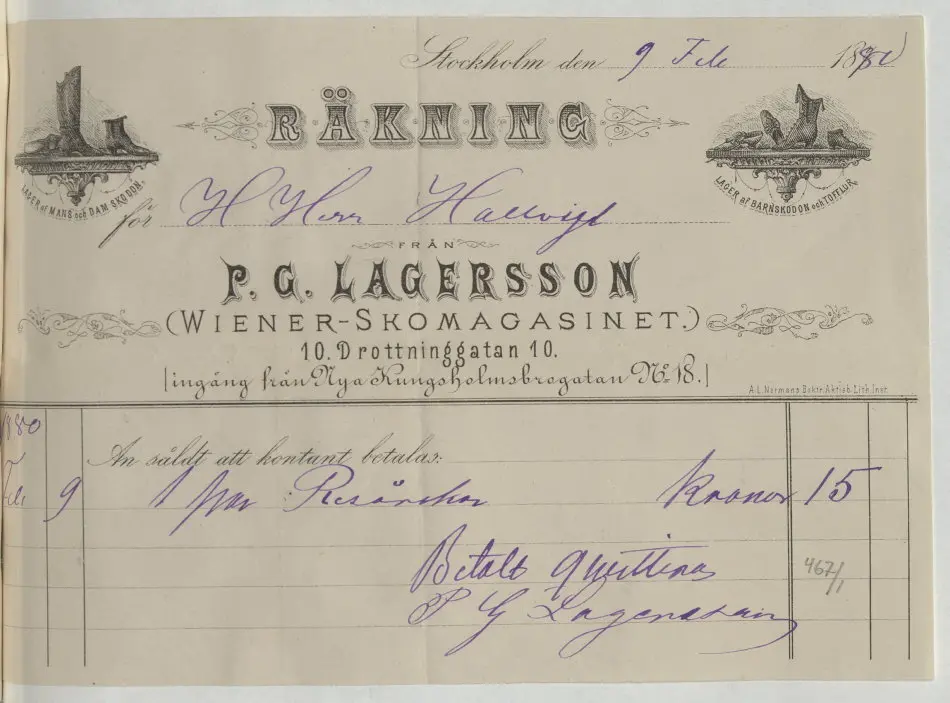 Stockholm den 9 Feb 1880
RÄKNING
LAGER af MANS och DAM SKODON.
LAGER af BARNSKODON och TOFFLOR
för H Herr Hallvigt
FRÅN
P. G. LAGERSSON
(WIENER-SKOMAGASINET.)
10. Drottninggatan 10.
[ingång från Nya Kungsholmsbrogatan No 18.]
A.L. Normans Boktr. Aktieb. Lith. Inst.
1880
An såldt att kontant betalas:
Feb 9 1 par Resårskor Kronor 15
Betalt Quitteras
467/1
P G Lagersson